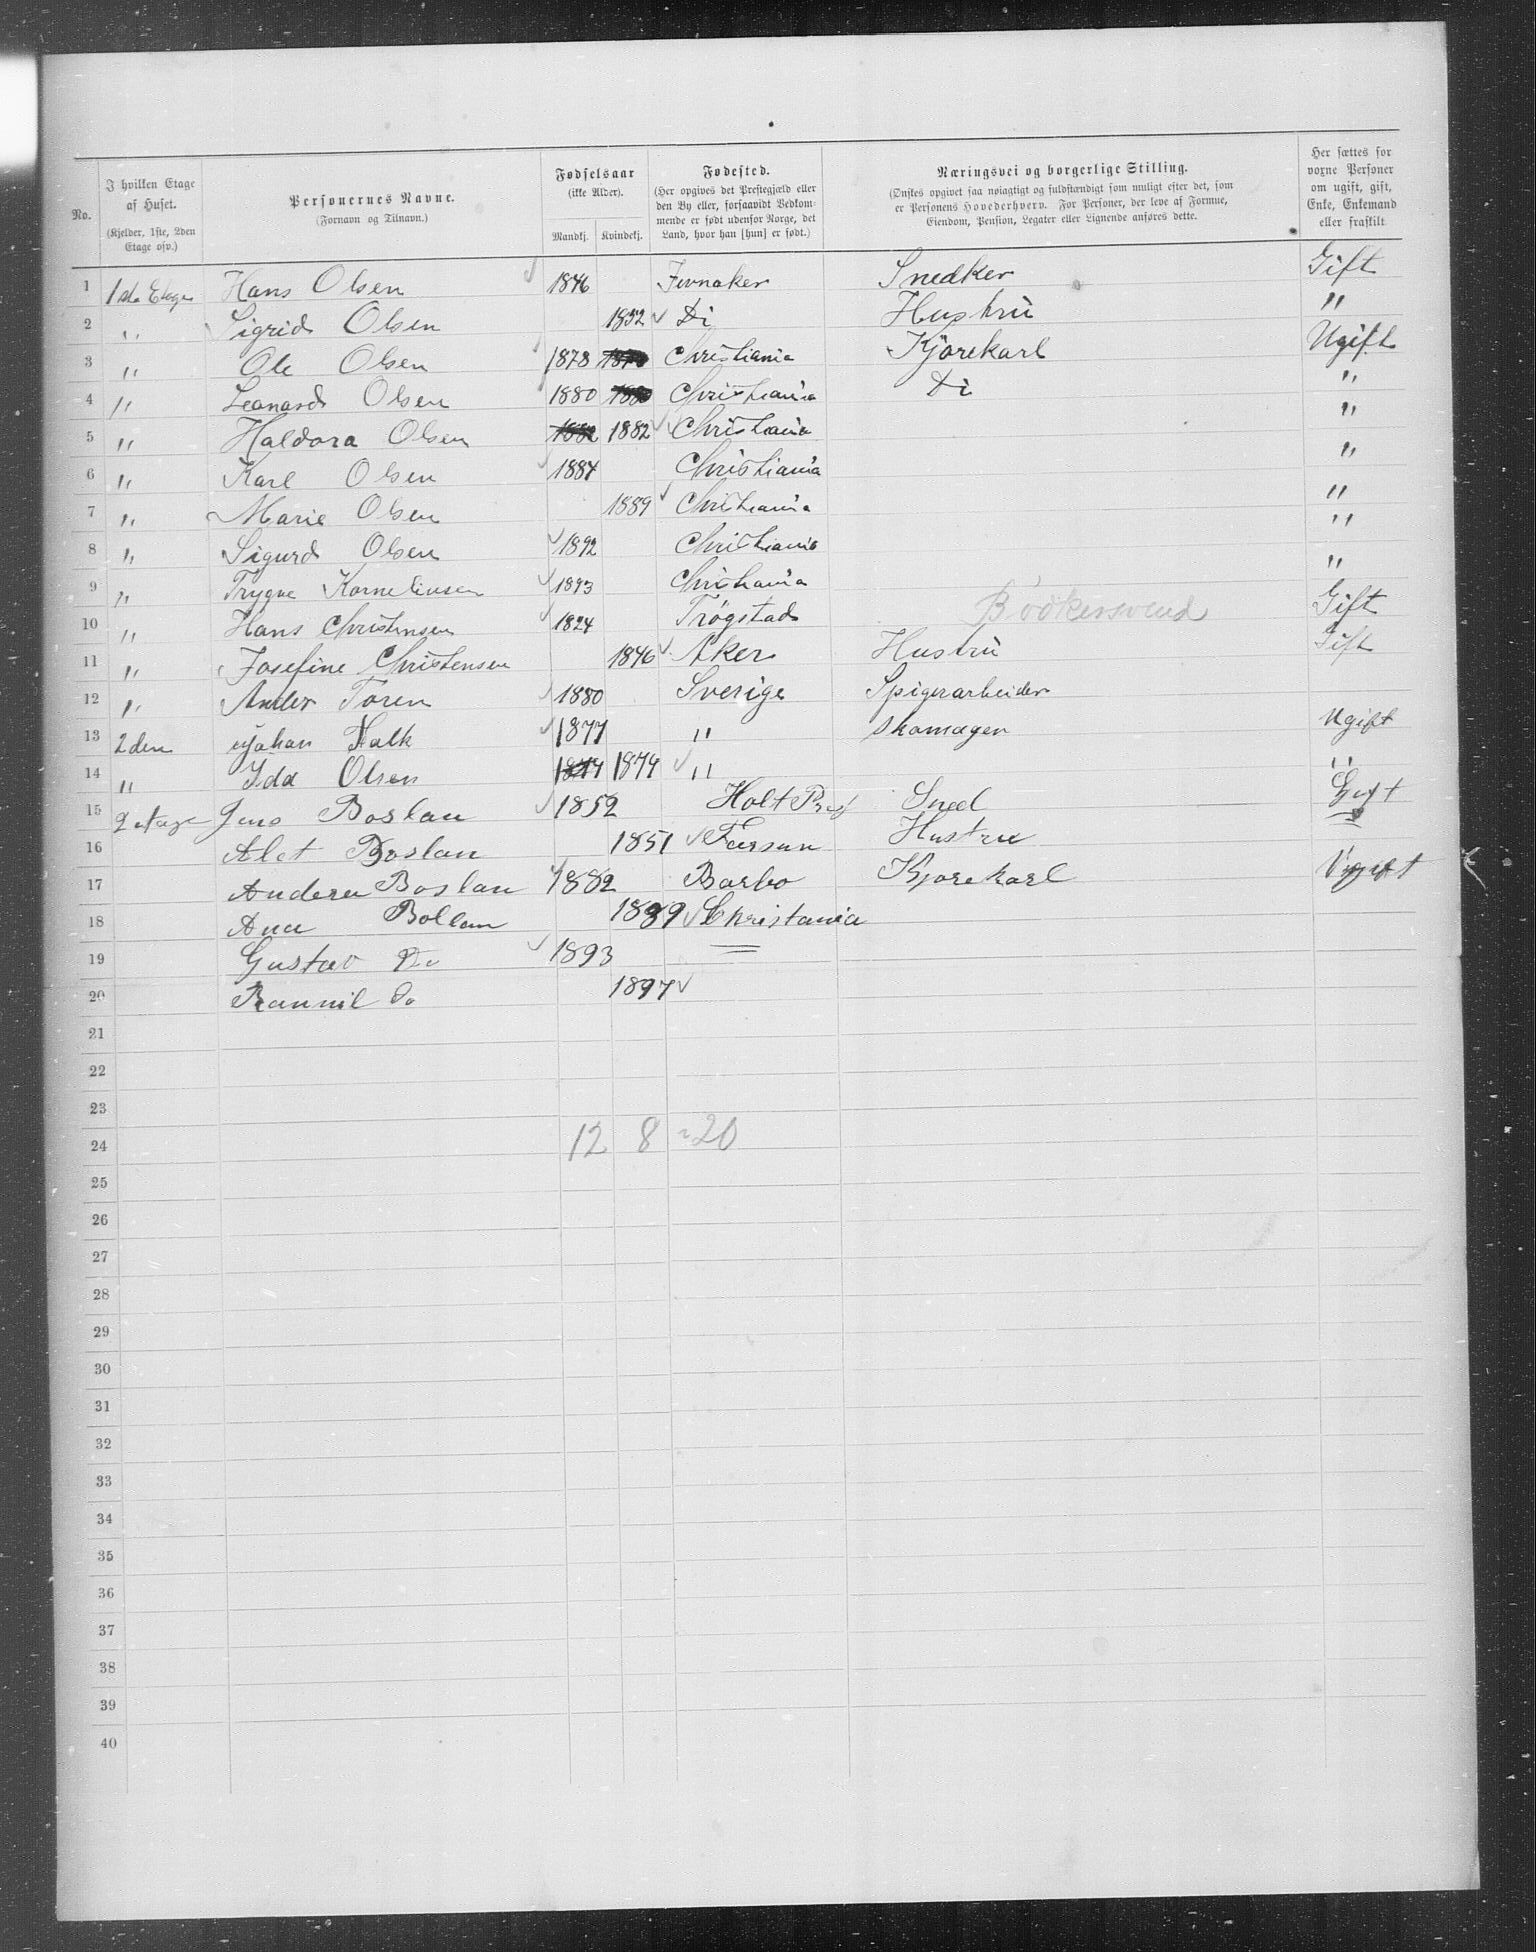 No.
I hvilken Etage af Huset.
(Kjelder, 1ste, 2den Etage osv.)
Personernes Navne.
(Fornavn og Tilnavn.)
Fødselsaar
(ikke Alder).
Mandkj. Kvindekj.
Fødested.
(Her opgives det Prestegjæld eller den By eller, forsaavidt Vedkommende er født udenfor Norge, det Land, hvor han [hun] er født.)
Næringsvei og borgerlige Stilling.
(Ønskes opgivet saa nøiagtigt og fuldstændigt som muligt efter det, som er Personens Hovederhverv. For Personer, der leve af Formue, Eiendom, Pension, Legater eller Lignende anføres dette.
Her sættes for voxne Personer om ugift, gift, Enke, Enkemand eller fraskilt
1 1ste Etage Hans Olsen 1846 Jevnaker Snedker Gift
2 " Sigrid Olsen 1852 Di Hustru "
3 " Ole Olsen 1878 Christiania Kjørekarl Ugift
4 " Leonard Olsen 1880 1880 Christiania Di "
5 " Haldora Olsen 1882 1882 Christiania "
6 " Karl Olsen 1884 Christiania "
7 " Marie Olsen 1889 Christiania "
8 " Sigurd Olsen 1892 Christiania "
9 " Trygve Korneliusen 1893 Christiania "
10 " Hans Christensen 1824 Trøgstad Bødkersvend Gift
11 " Josefine Christensen 1846 Aker Hustru Gift
12 " Anders Toren 1880 Sverige Spigerarbeider
13 2den Johan Falk 1877 " Skomager Ugift
14 " Ida Olsen 1874 1874 " "
15 2 etage Jens Boslan 1852 Holt Sned Gift
16 Alet Boslan 1851 Farsun Hustru
17 Andera Boslan 1882 Barbo Kjorekarl Ugift
18 Ana 1889 Christania
19 Gustav Do 1893 =
20 Rannil Do 1897
21
22
23
24 12 8 = 20
25
26
27
28
29
30
31
32
33
34
35
36
37
38
39
40